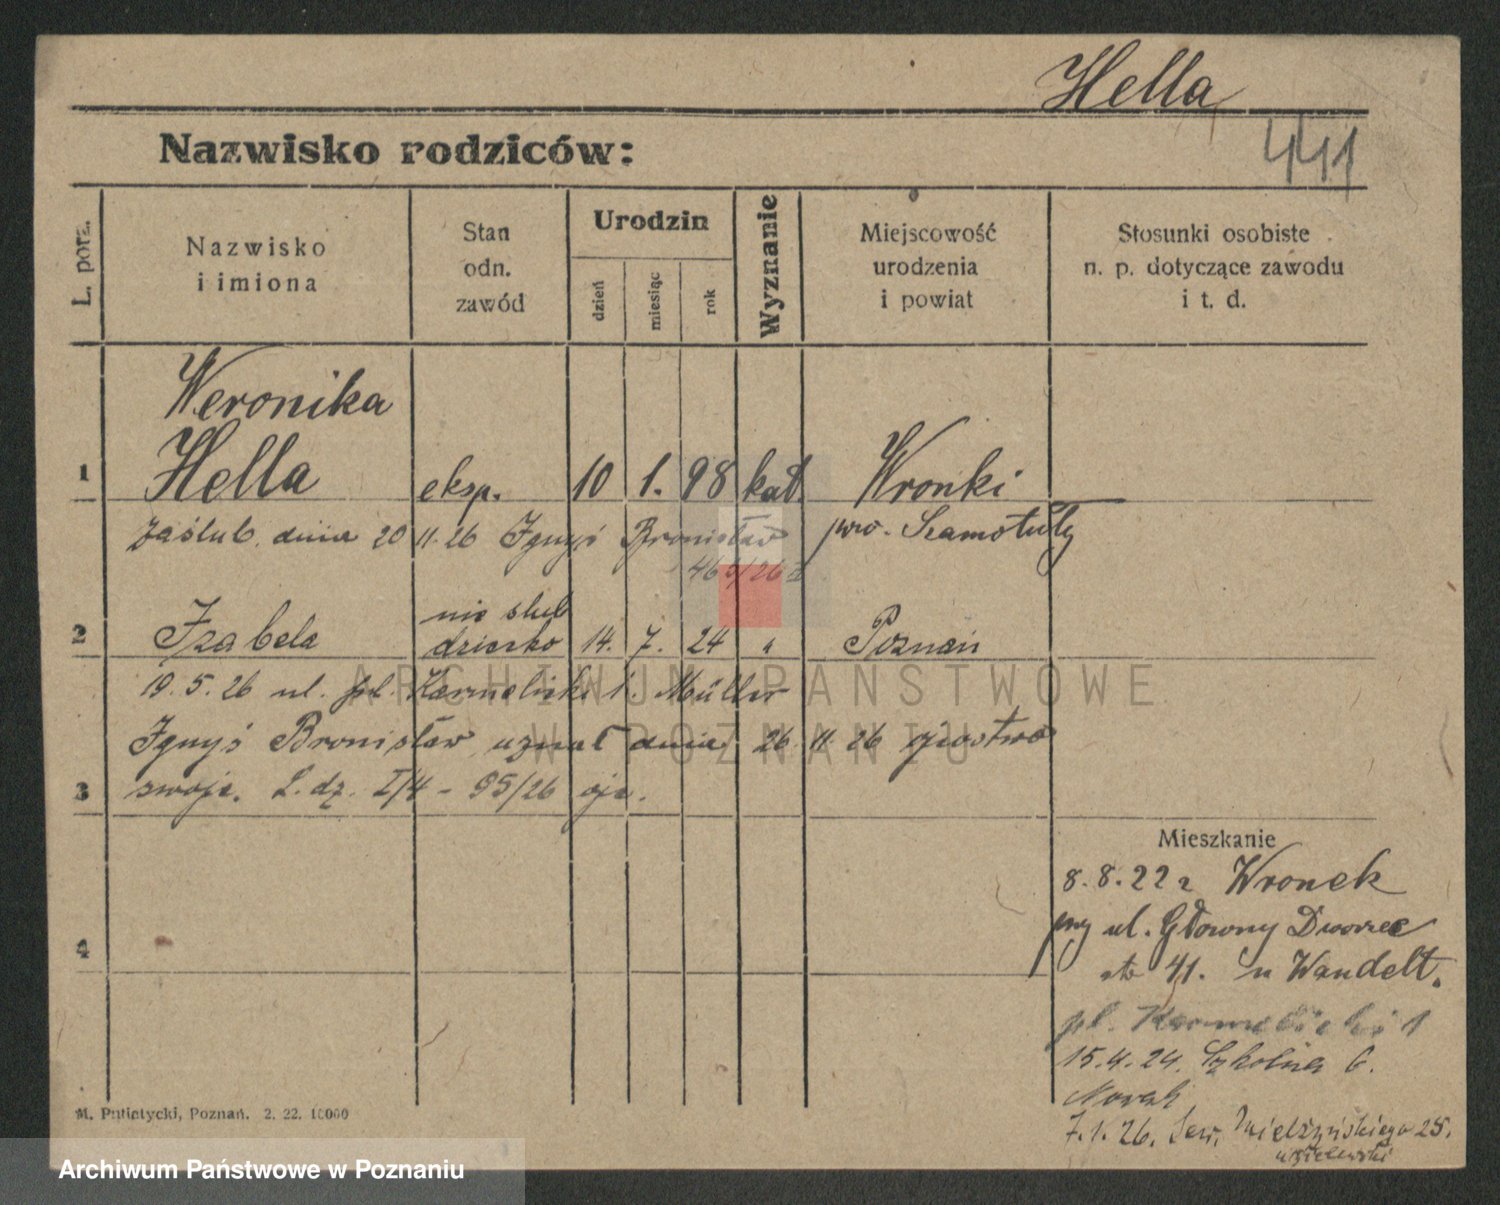 Hella
441
Nazwisko rodziców:
L. porz.
Nazwisko
i imiona
Stan
odn.
zawód
Urodzin
dzień
miesiąc
rok
Wyznanie
Miejscowość
urodzenia
i powiat
Stosunki osobiste
n. p. dotyczące zawodu
i t. d.
Weronika
1 Hella eksp. 10 1. 98 kat. Wronki
zaślub. dnia 20 11.26 Ignyś Bronisław pow. Szamotuły
465/26
nie ślub
2 Izabela dziecko 14. 7. 24 " Poznań
19.5.26 ul. pl. Karmelicki 1. Müller
Ignyś Bronisław uznał dnia 26 11 26 ojcostwo
3 swoje. L. dz. I/4 - 95/26
Mieszkanie
8.8.22 z Wronek
przy ul. Główny Dworzec
41. u Wandelt.
4
pl. Karmelicki 1
15.4.24. Szkolna 6.
Nowak
7.1.26. Sew. Mielżyńskiego 25.
M. Putiatycki, Poznań. 2. 22. 10000
ARCHIWUM PAŃSTWOWE
W POZNANIU
Archiwum Państwowe w Poznaniu